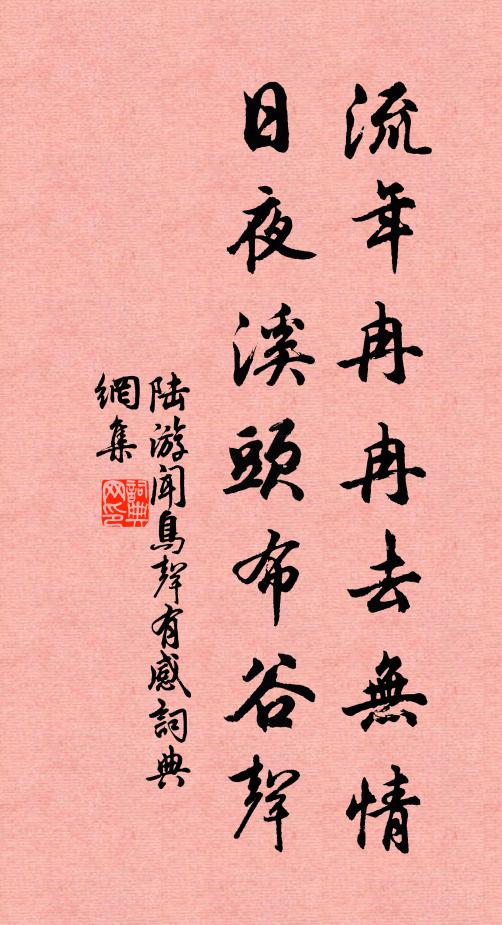 流年冉冉去無情
日夜溪頭布谷聲
陆游闻鳥聲有感詞典
網集
詞典网印